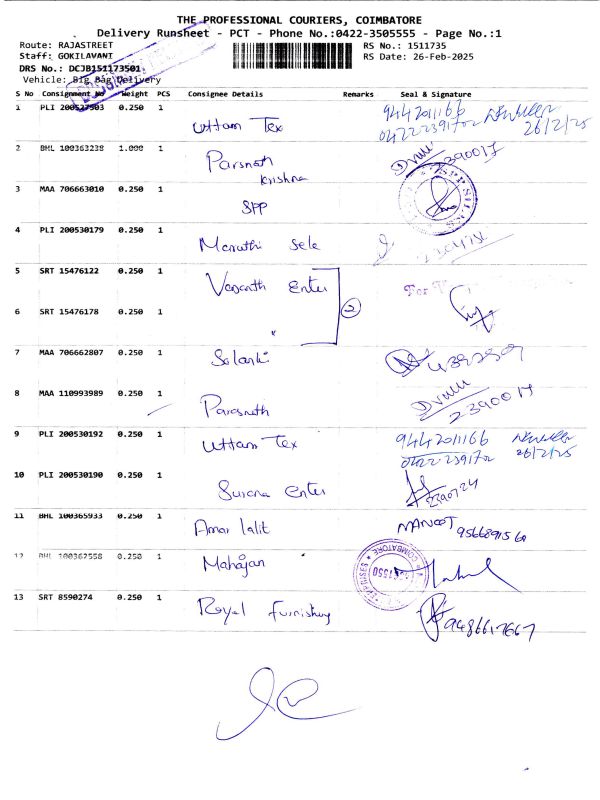 THE PROFESSIONAL COURIERS, COIMBATORE
Delivery Runsheet - PCT - Phone No.:0422-3505555 - Page No.:1
Route: RAJASTREET RS No.: 1511735
Staff: GOKILAVANI RS Date: 26-Feb-2025
DRS No.: DCJB151173501
Vehicle: Big Bag Delivery
S No Consignment No Weight PCS Consignee Details Remarks Seal & Signature
1 PLI 200527503 0.250 1 Uttam Tex 9442011166
0422-2391702 26/2/25
2 BHL 100363238 1.000 1 Parsnath 2390017
krishna
3 MAA 706663010 0.250 1 SPP
4 PLI 200530179 0.250 1 Maruthi Sele
5 SRT 15476122 0.250 1 Vasanth Enter For
6 SRT 15476178 0.250 1 2
7 MAA 706662807 0.250 1 Solanki
8 MAA 110993989 0.250 1 Parasnath 2390017
9 PLI 200530192 0.250 1 Uttam Tex 9442011166
26/2/25
10 PLI 200530190 0.250 1 Surana Enter
11 BHL 100365933 0.250 1 Amar lalit MANEET
12 BHL 100367558 0.250 1 Mahajan COIMBATORE
13 SRT 8590274 0.250 1 Royal Furnishing 9486617667